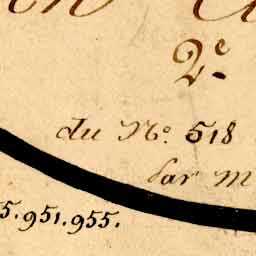 2e.
du No. 518
Par M
5.951.955.